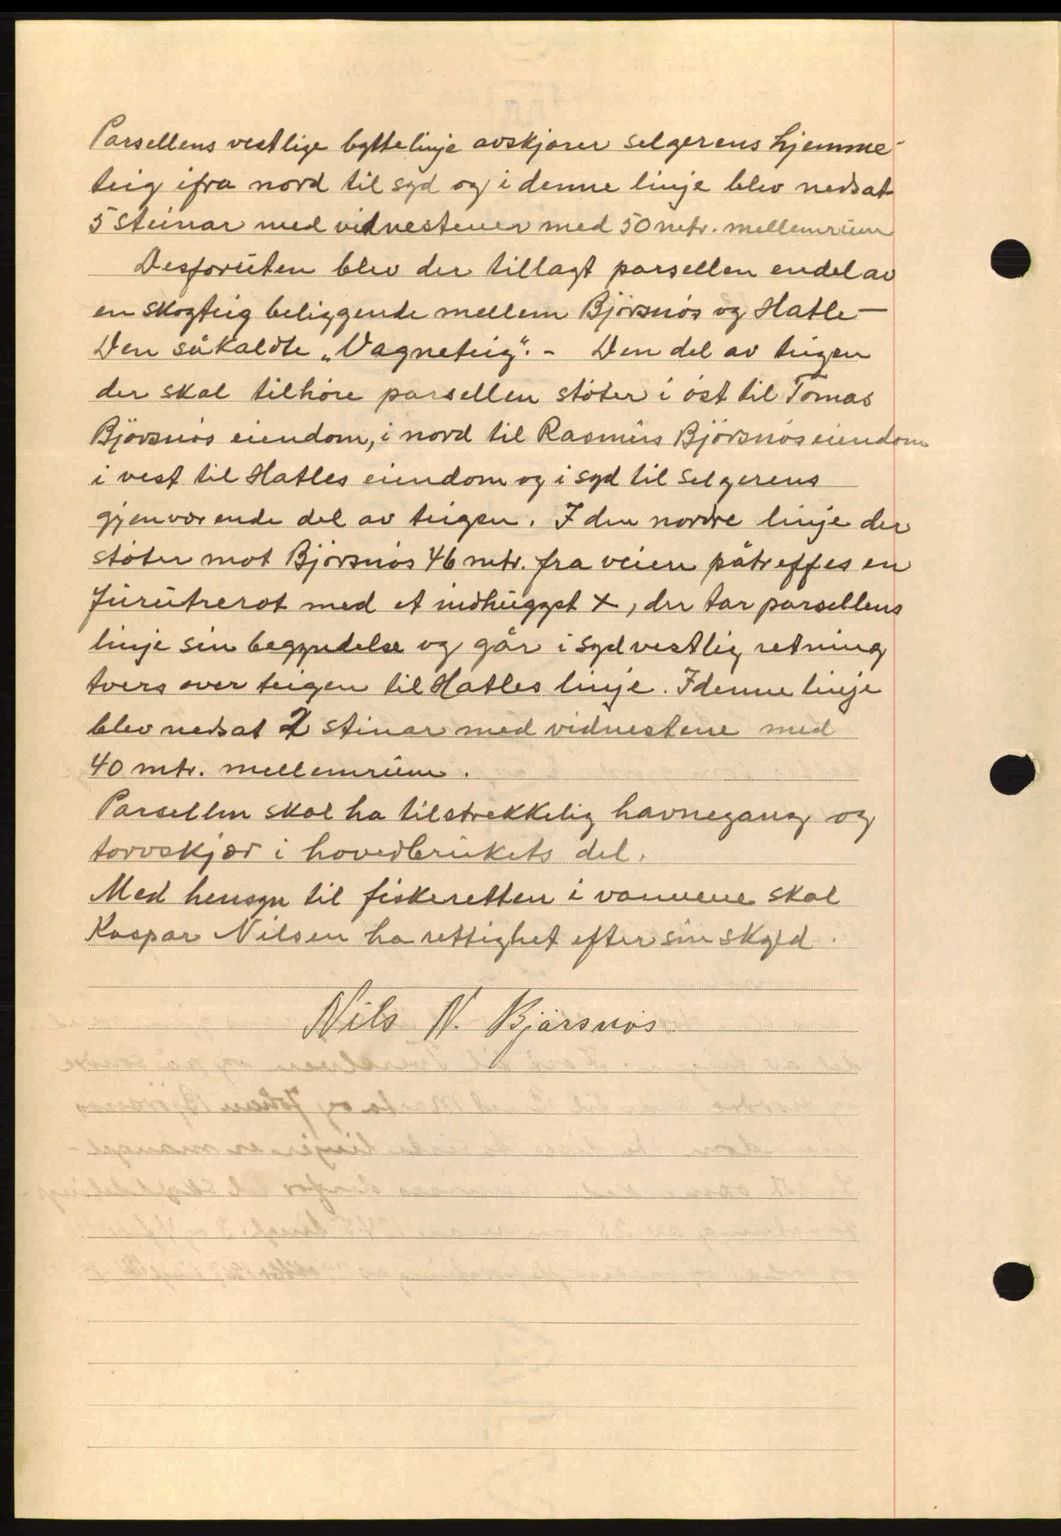 Parsellens vestlige byttelinje avskjærer selgerens hjemme-
teig ifra nord til syd og i denne linje blev nedsat
5 steinar med vidnestener med 50 mtr. mellemrum
Desforuten blev der tillagt parsellen endel av
en skogteig beliggende mellem Björsnös og Hatle —
Den såkaldte „Vagneteig“. - Den del av teigen
der skal tilhöre parsellen stöter i öst til Tomas
Björsnös eiendom, i nord til Rasmus Björsnös eiendom
i vest til Hatles eiendom og i syd til selgerens
gjenværende del av teigen. I den nordre linje der
stöter mot Björsnös 46 mtr. fra veien påtreffes en
furutrerot med et indhugget X, der tar parsellens
linje sin begyndelse og går i sydvestlig retning
tvers over teigen til Hatles linje. I denne linje
blev nedsat 2 steinar med vidnestene med
40 mtr. mellemrum.
Parsellen skal ha tilstrekkelig havnegang og
torvskjær i hovedbrukets del.
Med hensyn til fiskeretten i vannene skal
Kaspar Nilsen ha rettighet efter sin skyld.
Nils N. Björsnös